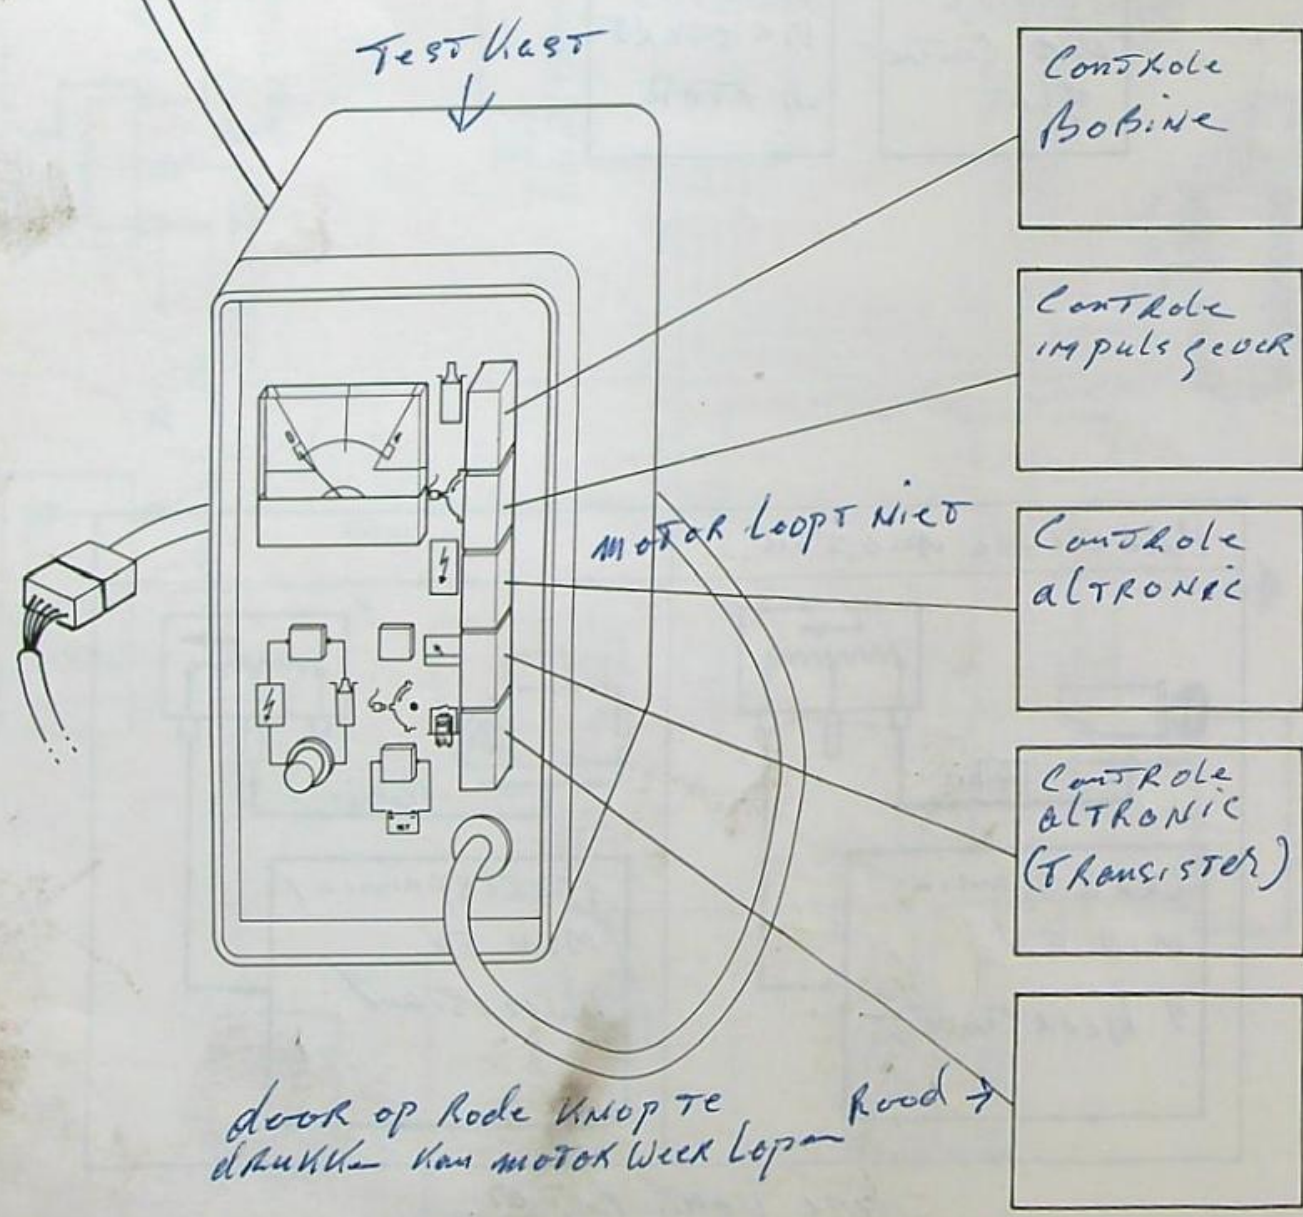 Test Kast
Controle
Bobine
Controle
impulsgever
motor loopt niet
Controle
altronic
Controle
altronic
(Transister)
Rood →
door op Rode knop te
drukken kan motor weer lopen